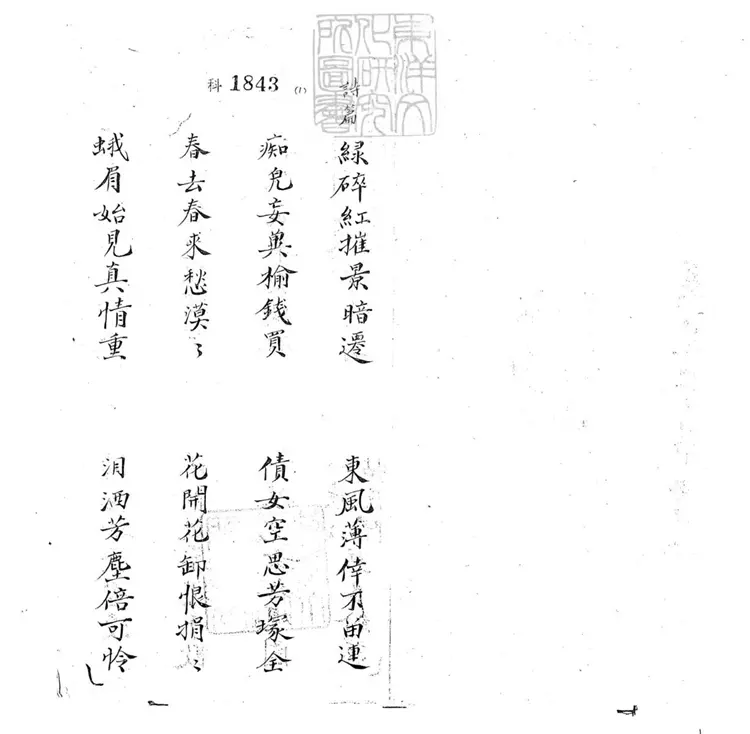 東洋文化研究所圖書
科 1843 (1)
詩篇
緑碎紅摧景暗遷 東風薄倖不畄連
痴兒妄兾榆錢買 債女空思芳塚全
春去春來愁漠〻 花開花卸恨捐〻
蛾眉始見真情重 泪洒芳塵倍可怜